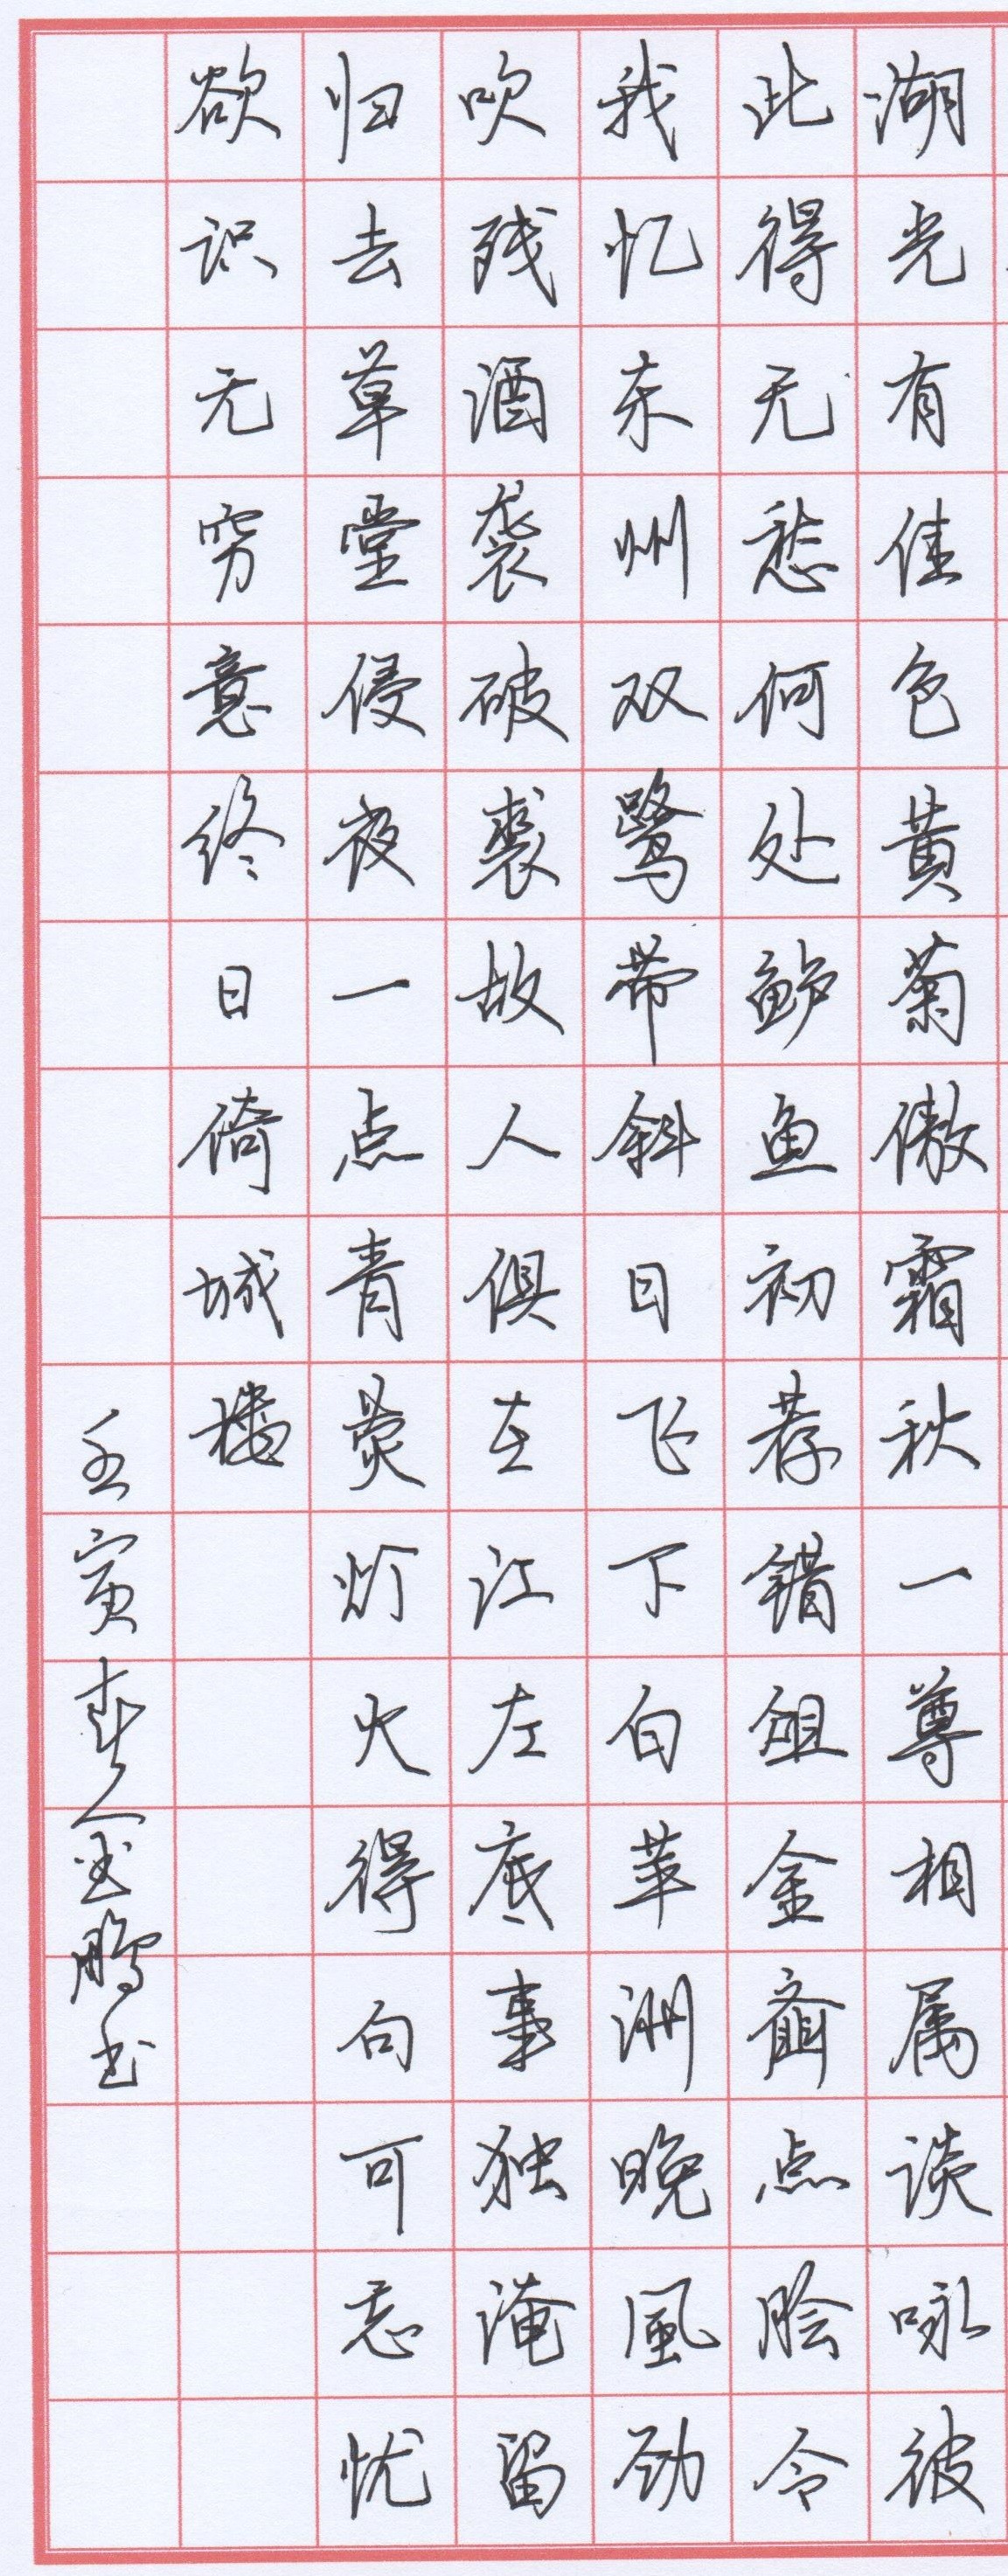 湖光有佳色黄菊傲霜秋一尊相属谈咏彼
此得无愁何处鲈鱼初荐错俎金齑点脍令
我忆东州双鹭带斜日飞下白苹洲晚風劲
吹残酒袭破裘故人俱在江左底事独淹留
归去草堂侵夜一点青荧灯火得句可忘忧
欲识无穷意终日倚城楼
壬寅春鹏书